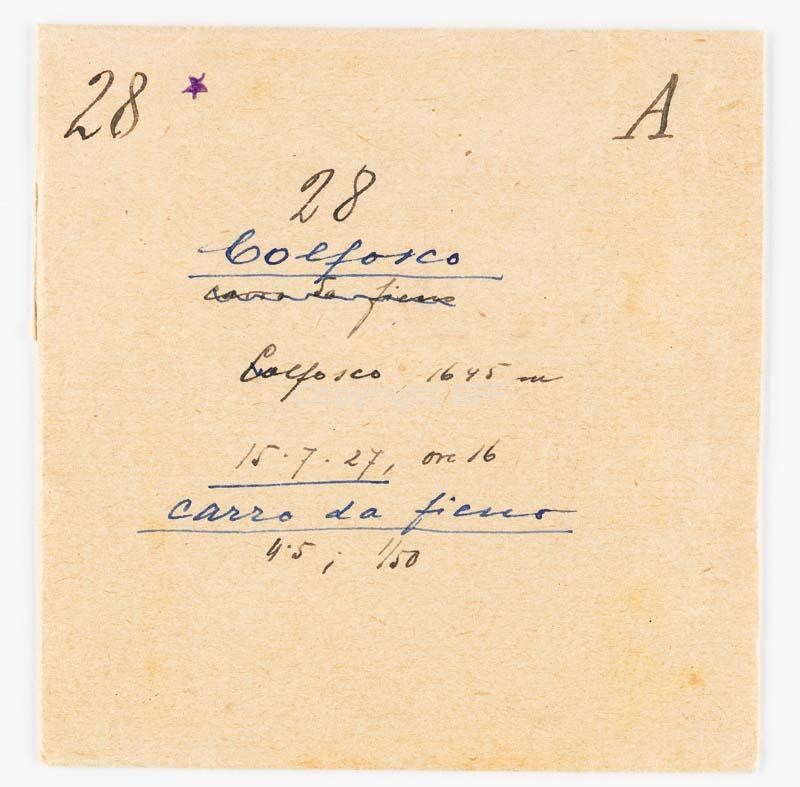 28 A
28
Colfosco
carro da fieno
Colfosco 1645 m
15.7.27, ore 16
carro da fieno
4.5 ; 1/50